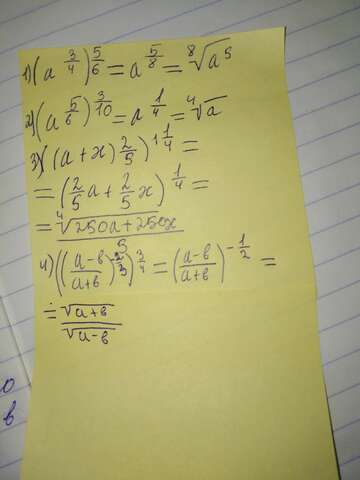 1) (a^{3/4})^{5/6} = a^{5/8} = \sqrt[8]{a^5}
2) (a^{5/6})^{3/10} = a^{1/4} = \sqrt[4]{a}
3) ((a+x) 2/5)^{1 1/4} =
= (2/5 a + 2/5 x)^{1/4} =
= \sqrt[4]{250a+250x} / 5
4) (((a-b)/(a+b))^{-2/3})^{3/4} = ((a-b)/(a+b))^{-1/2} =
= \sqrt{a+b} / \sqrt{a-b}
о
в